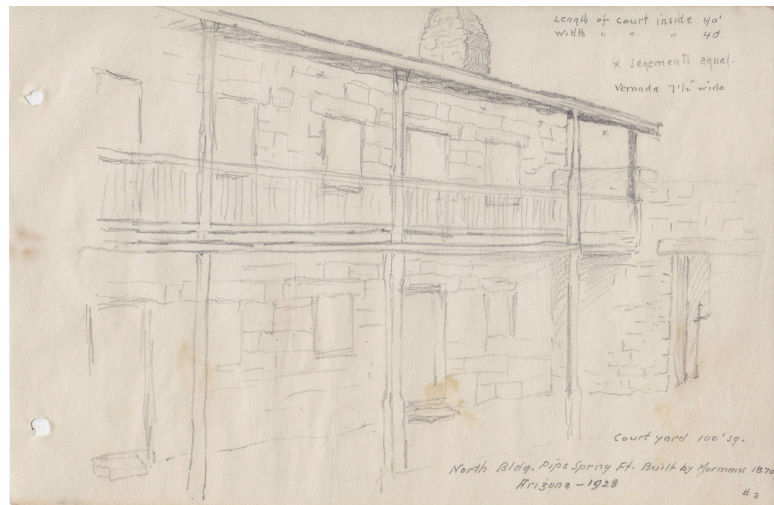 Length of court inside 40'
Width " " " 40
x segements equal.
Veranda 7'½" wide
x
x
x
Court yard 100' sq.
North Bldg. Pipe Spring Ft. Built by Mormans 1870
Arizona - 1928
#2